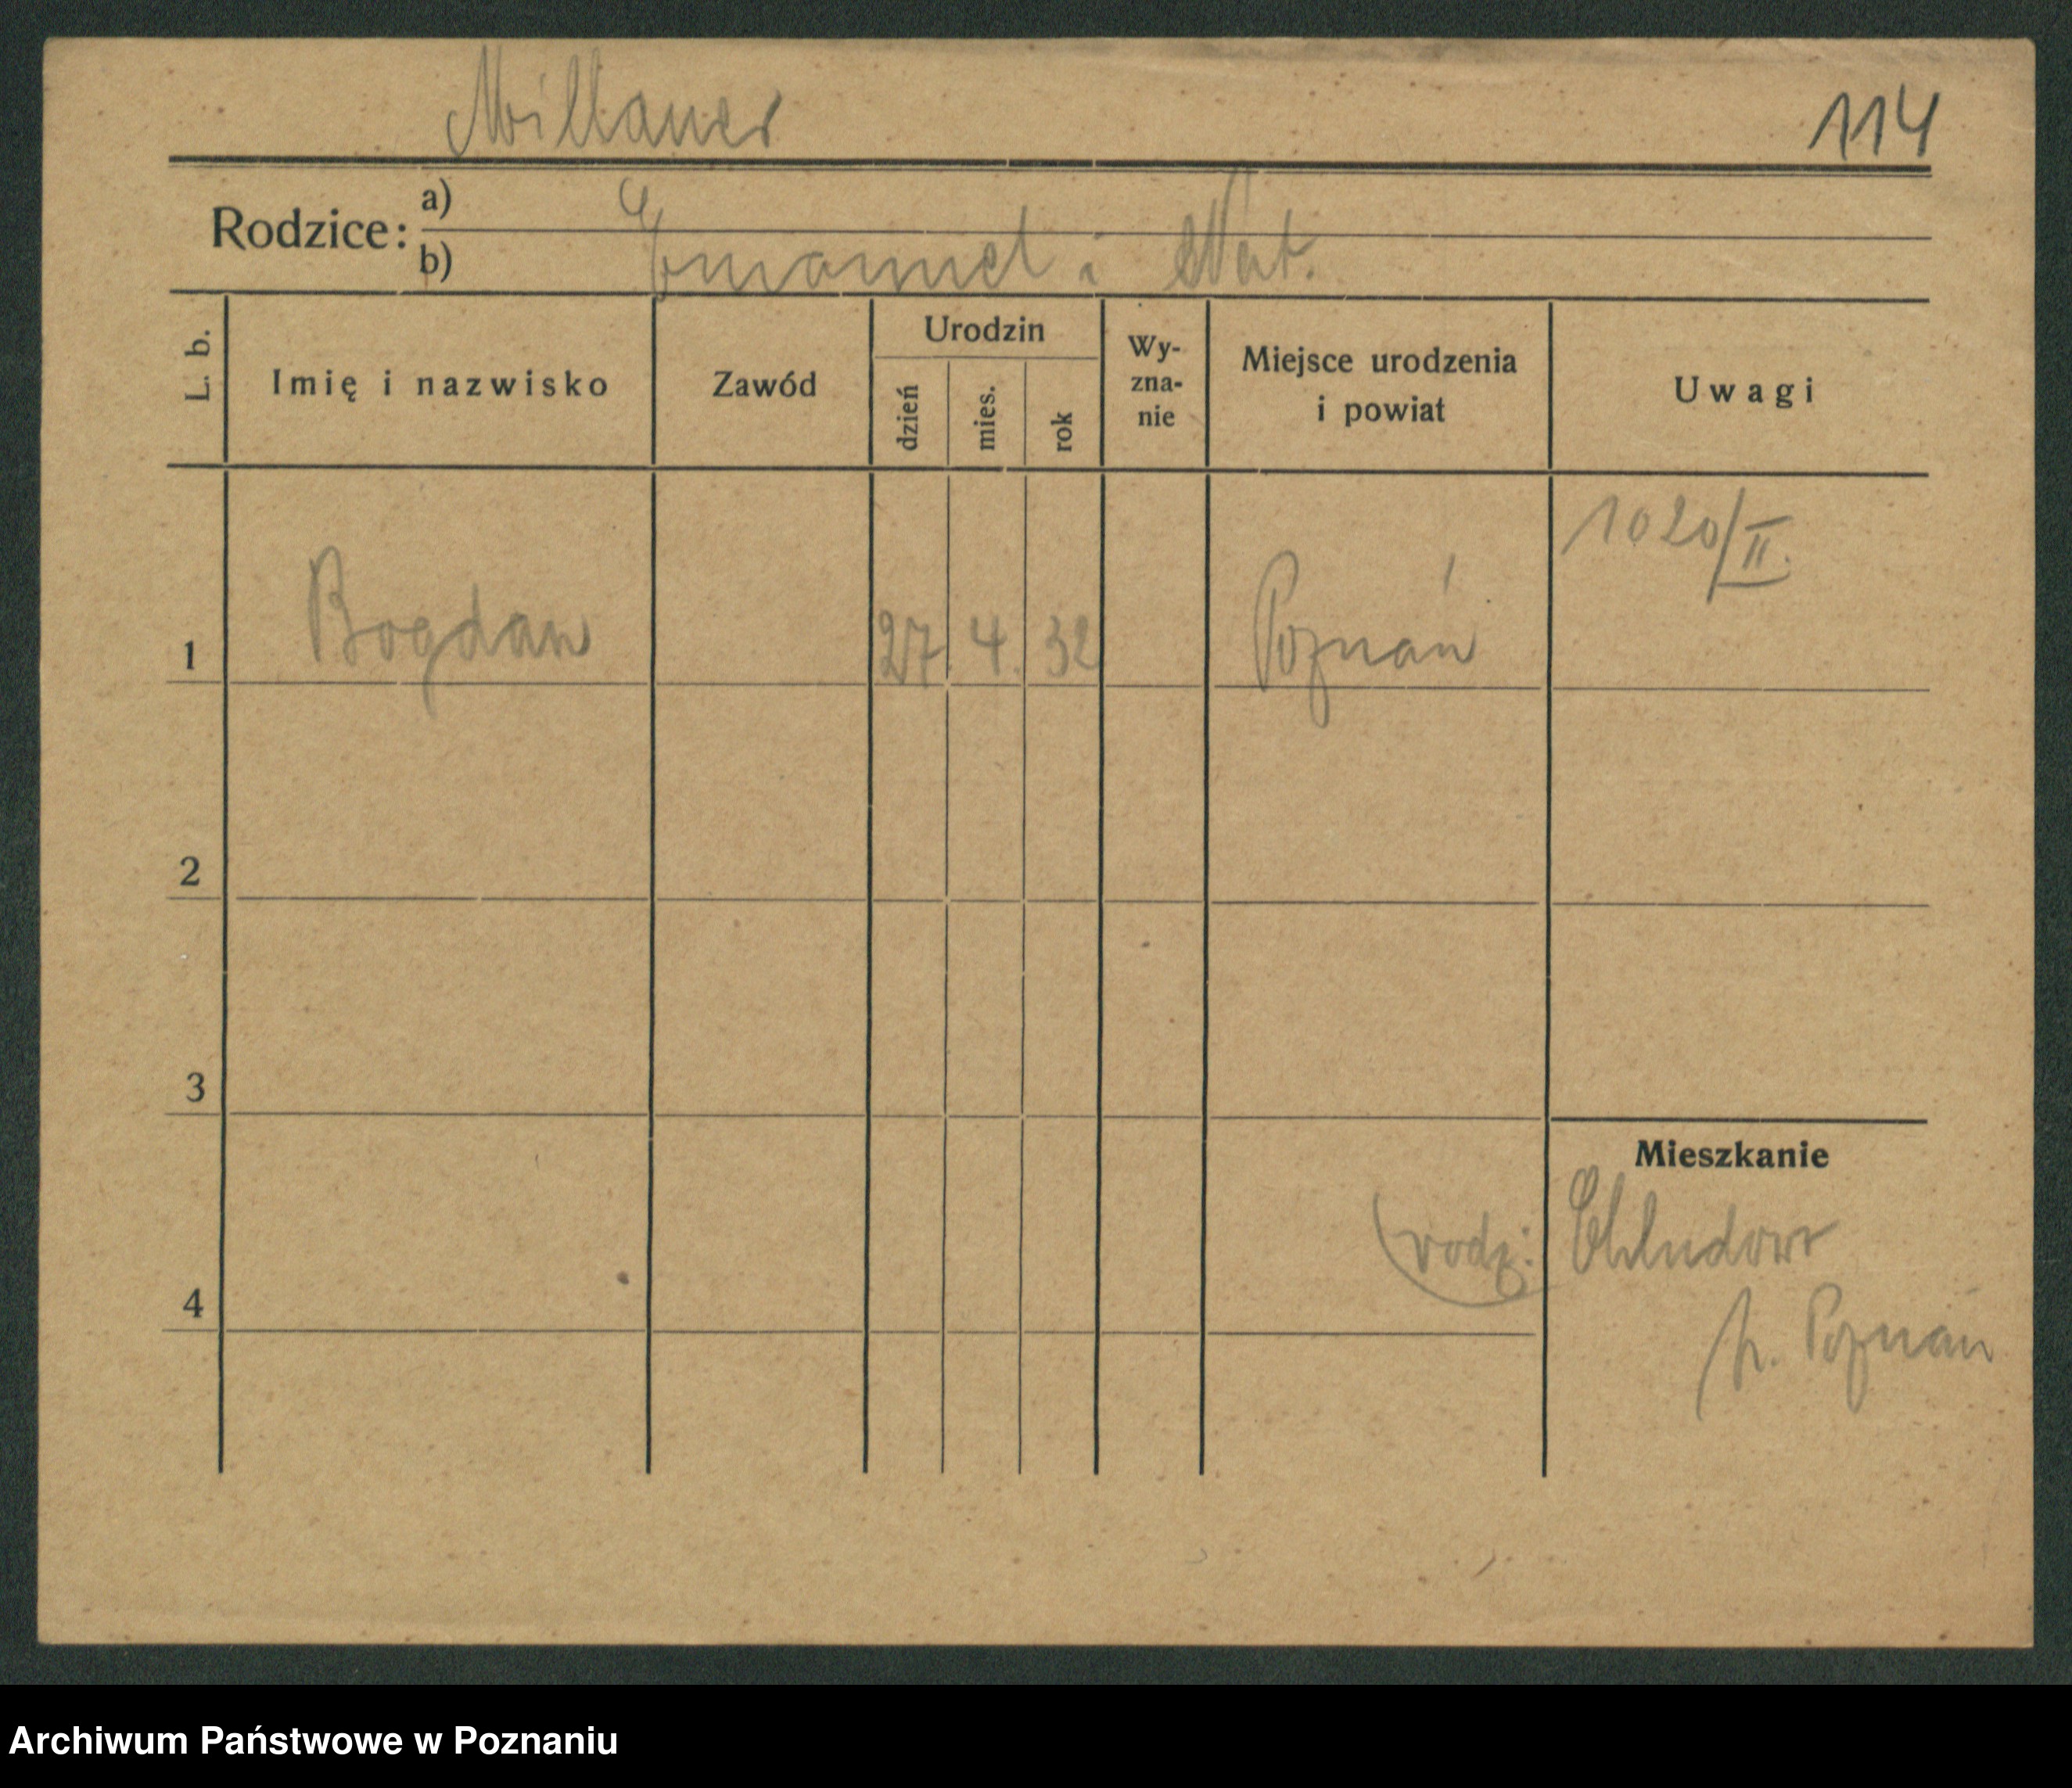 Milbauer
114
Rodzice:
a)
b) Emanuel i Nat.
L. b.
Imię i nazwisko
Zawód
Urodzin
dzień
mies.
rok
Wy-
zna-
nie
Miejsce urodzenia
i powiat
Uwagi
1020/II.
1 Bogdan 27. 4. 32 Poznań
2
3
Mieszkanie
(rodz: Chludowo
4
p. Poznań
Archiwum Państwowe w Poznaniu